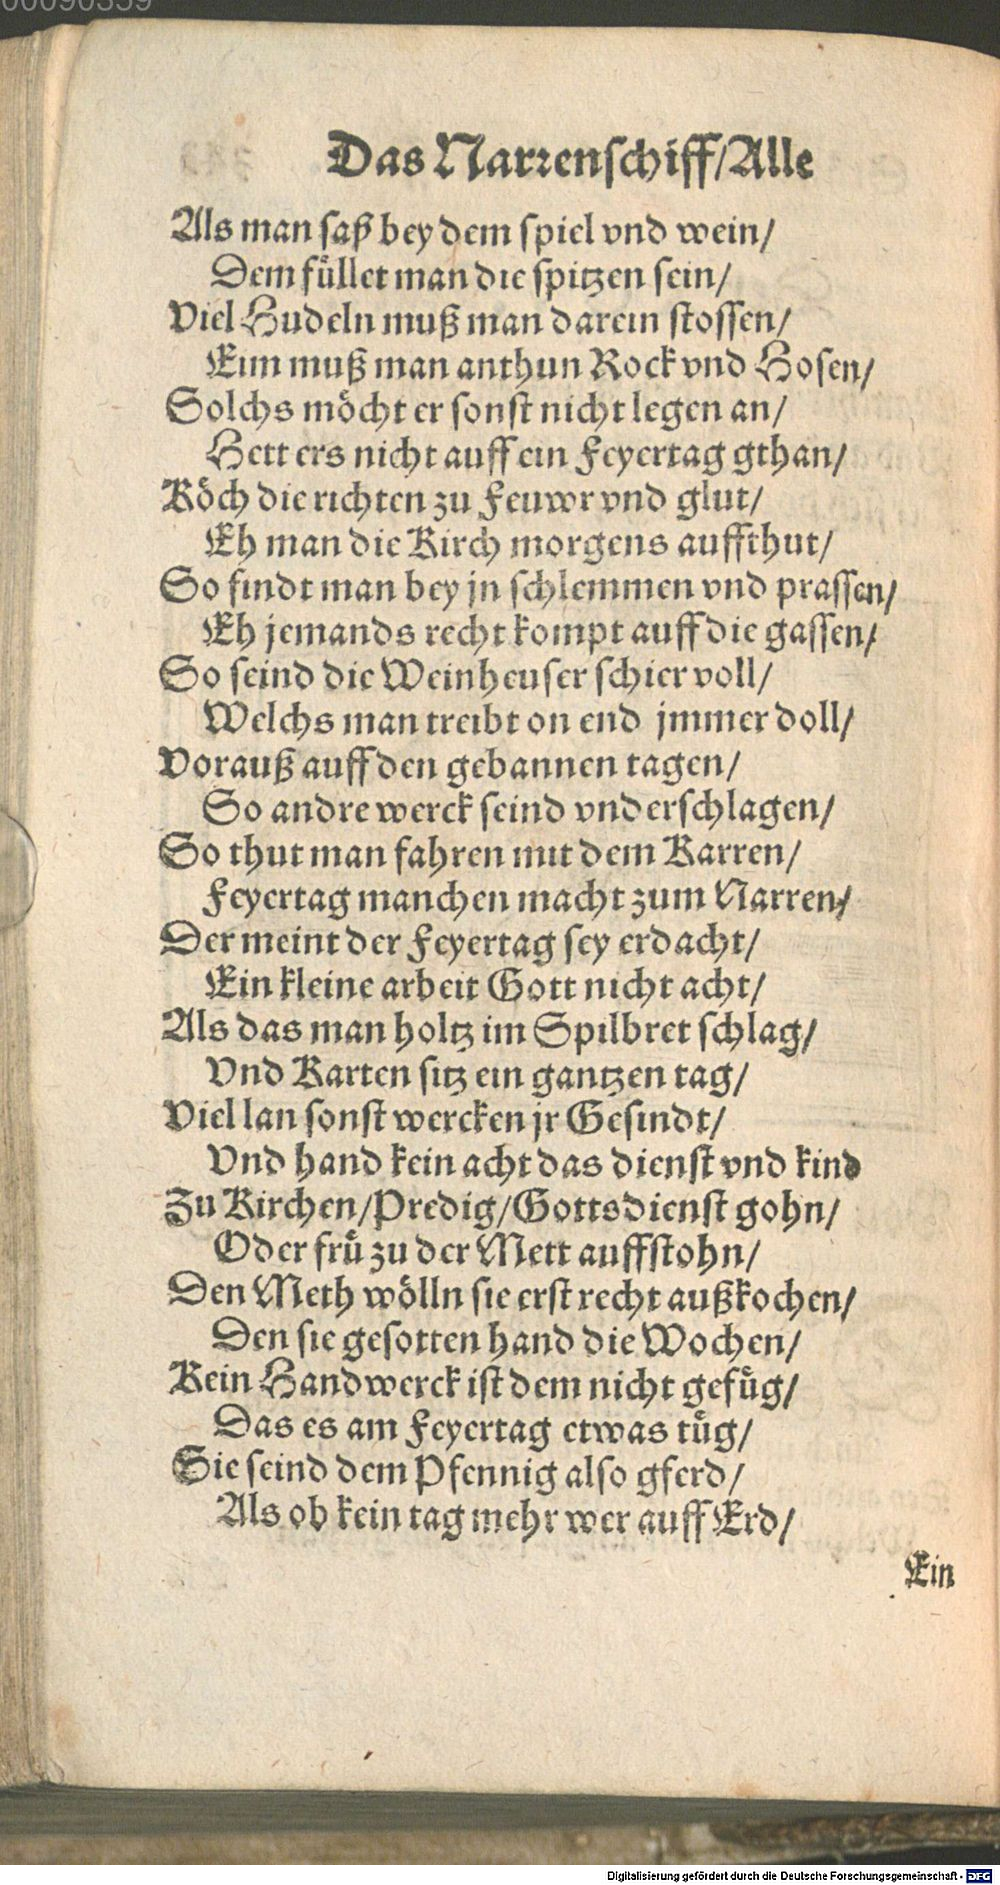 00090359
Das Narrenschiff/Alle
Als man saß bey dem spiel vnd wein/
Dem füllet man die spitzen sein/
Viel Hudeln muß man darein stossen/
Eim muß man anthun Rock vnd Hosen/
Solchs möcht er sonst nicht legen an/
Hett ers nicht auff ein Feyertag gthan/
Köch die richten zu Feuwr vnd glut/
Eh man die Kirch morgens auffthut/
So findt man bey jn schlemmen vnd prassen/
Eh jemands recht kompt auff die gassen/
So seind die Weinheuser schier voll/
Welchs man treibt on end jmmer doll/
Vorauß auff den gebannen tagen/
So andre werck seind vnderschlagen/
So thut man fahren mit dem Karren/
Feyertag manchen macht zum Narren/
Der meint der Feyertag sey erdacht/
Ein kleine arbeit Gott nicht acht/
Als das man holtz im Spilbret schlag/
Vnd Karten sitz ein gantzen tag/
Viel lan sonst wercken jr Gesindt/
Vnd hand kein acht das dienst vnd kind
Zu Kirchen/Predig/Gottsdienst gohn/
Oder frü zu der Mett auffstohn/
Den Meth wölln sie erst recht außkochen/
Den sie gesotten hand die Wochen/
Kein Handwerck ist dem nicht gefüg/
Das es am Feyertag etwas tüg/
Sie seind dem Pfennig also gferd/
Als ob kein tag mehr wer auff Erd/
Ein
Digitalisierung gefördert durch die Deutsche Forschungsgemeinschaft - DFG